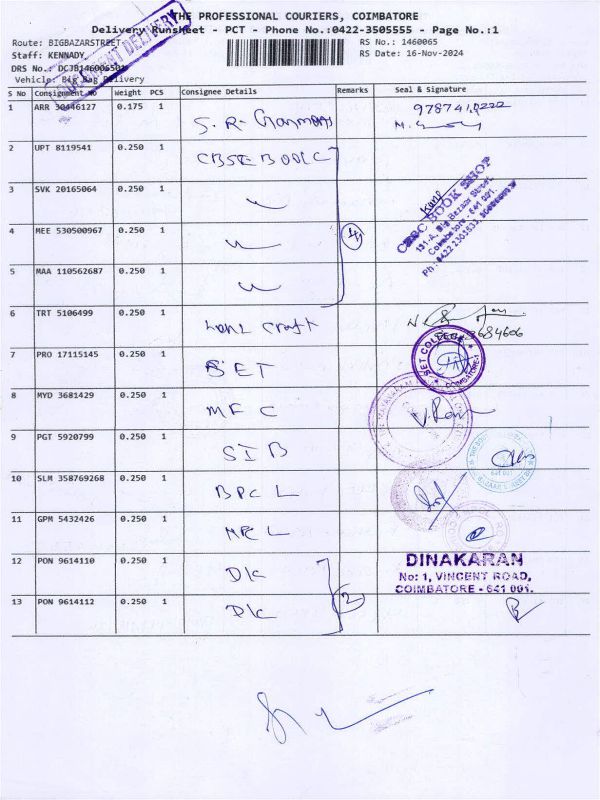 THE PROFESSIONAL COURIERS, COIMBATORE
Delivery Runsheet - PCT - Phone No.:0422-3505555 - Page No.:1
Route: BIGBAZARSTREET
RS No.: 1460065
Staff: KENNADY
RS Date: 16-Nov-2024
DRS No.:
Vehicle: Big Bag Delivery
S No Consignment No Weight PCS Consignee Details Remarks Seal & Signature
1 ARR 30446127 0.175 1 S.R.
2 UPT 8119541 0.250 1
3 SVK 20165064 0.250 1 "
4 MEE 530500967 0.250 1 " 4
5 MAA 110562687 0.250 1 "
CBSC BOOK SHOP
131-A, Big Bazaar Street,
Coimbatore - 641 001.
6 TRT 5106499 0.250 1
7 PRO 17115145 0.250 1 SET
SET COLLEGE
COIMBATORE-1
8 MYD 3681429 0.250 1 MFC V.
9 PGT 5920799 0.250 1 SIB
10 SLM 358769268 0.250 1 BPCL
11 GPM 5432426 0.250 1
12 PON 9614110 0.250 1 DK
DINAKARAN
No: 1, VINCENT ROAD,
COIMBATORE - 641 001.
13 PON 9614112 0.250 1 DK 2